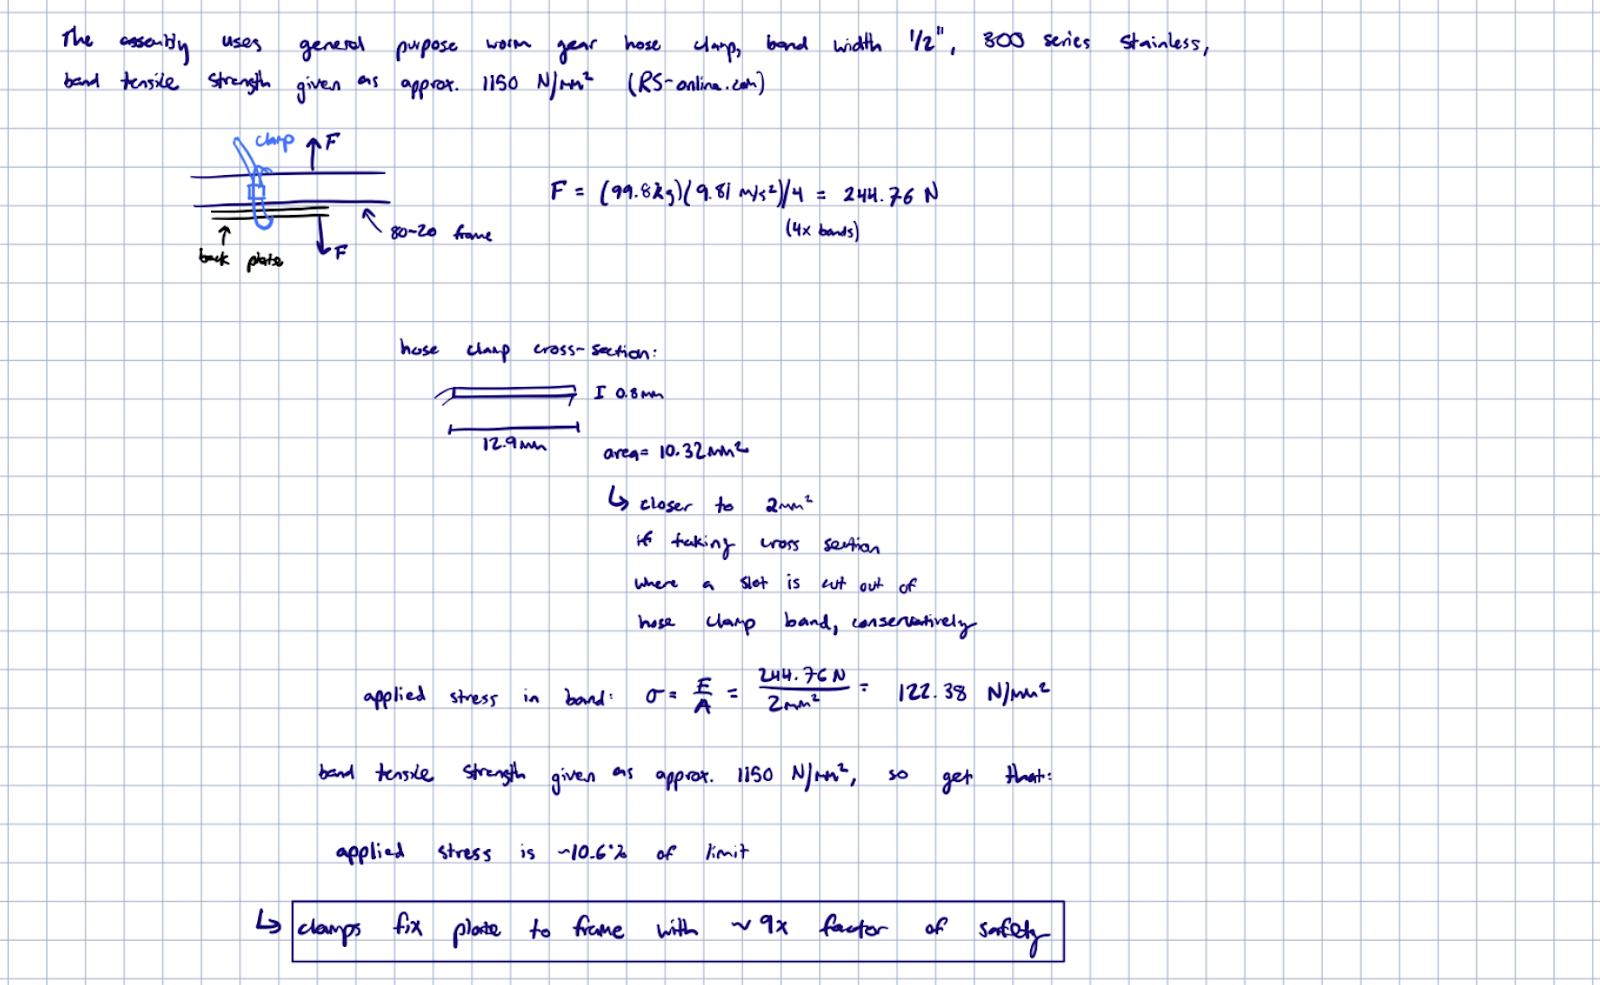 The assembly uses general purpose worm gear hose clamp, band width 1/2", 300 series stainless,
band tensile strength given as approx. 1150 N/mm² (RS-online.com)
clamp
F
F = (99.8kg)(9.81 m/s²)/4 = 244.76 N
(4x bands)
80-20 frame
back plate
F
hose clamp cross-section:
I 0.8mm
12.9mm
area= 10.32mm²
↳ closer to 2mm²
if taking cross section
where a slot is cut out of
hose clamp band, conservatively
applied stress in band: σ = F/A = 244.76 N/2mm² = 122.38 N/mm²
band tensile strength given as approx. 1150 N/mm², so get that:
applied stress is ~10.6% of limit
↳ clamps fix plate to frame with ~ 9x factor of safety